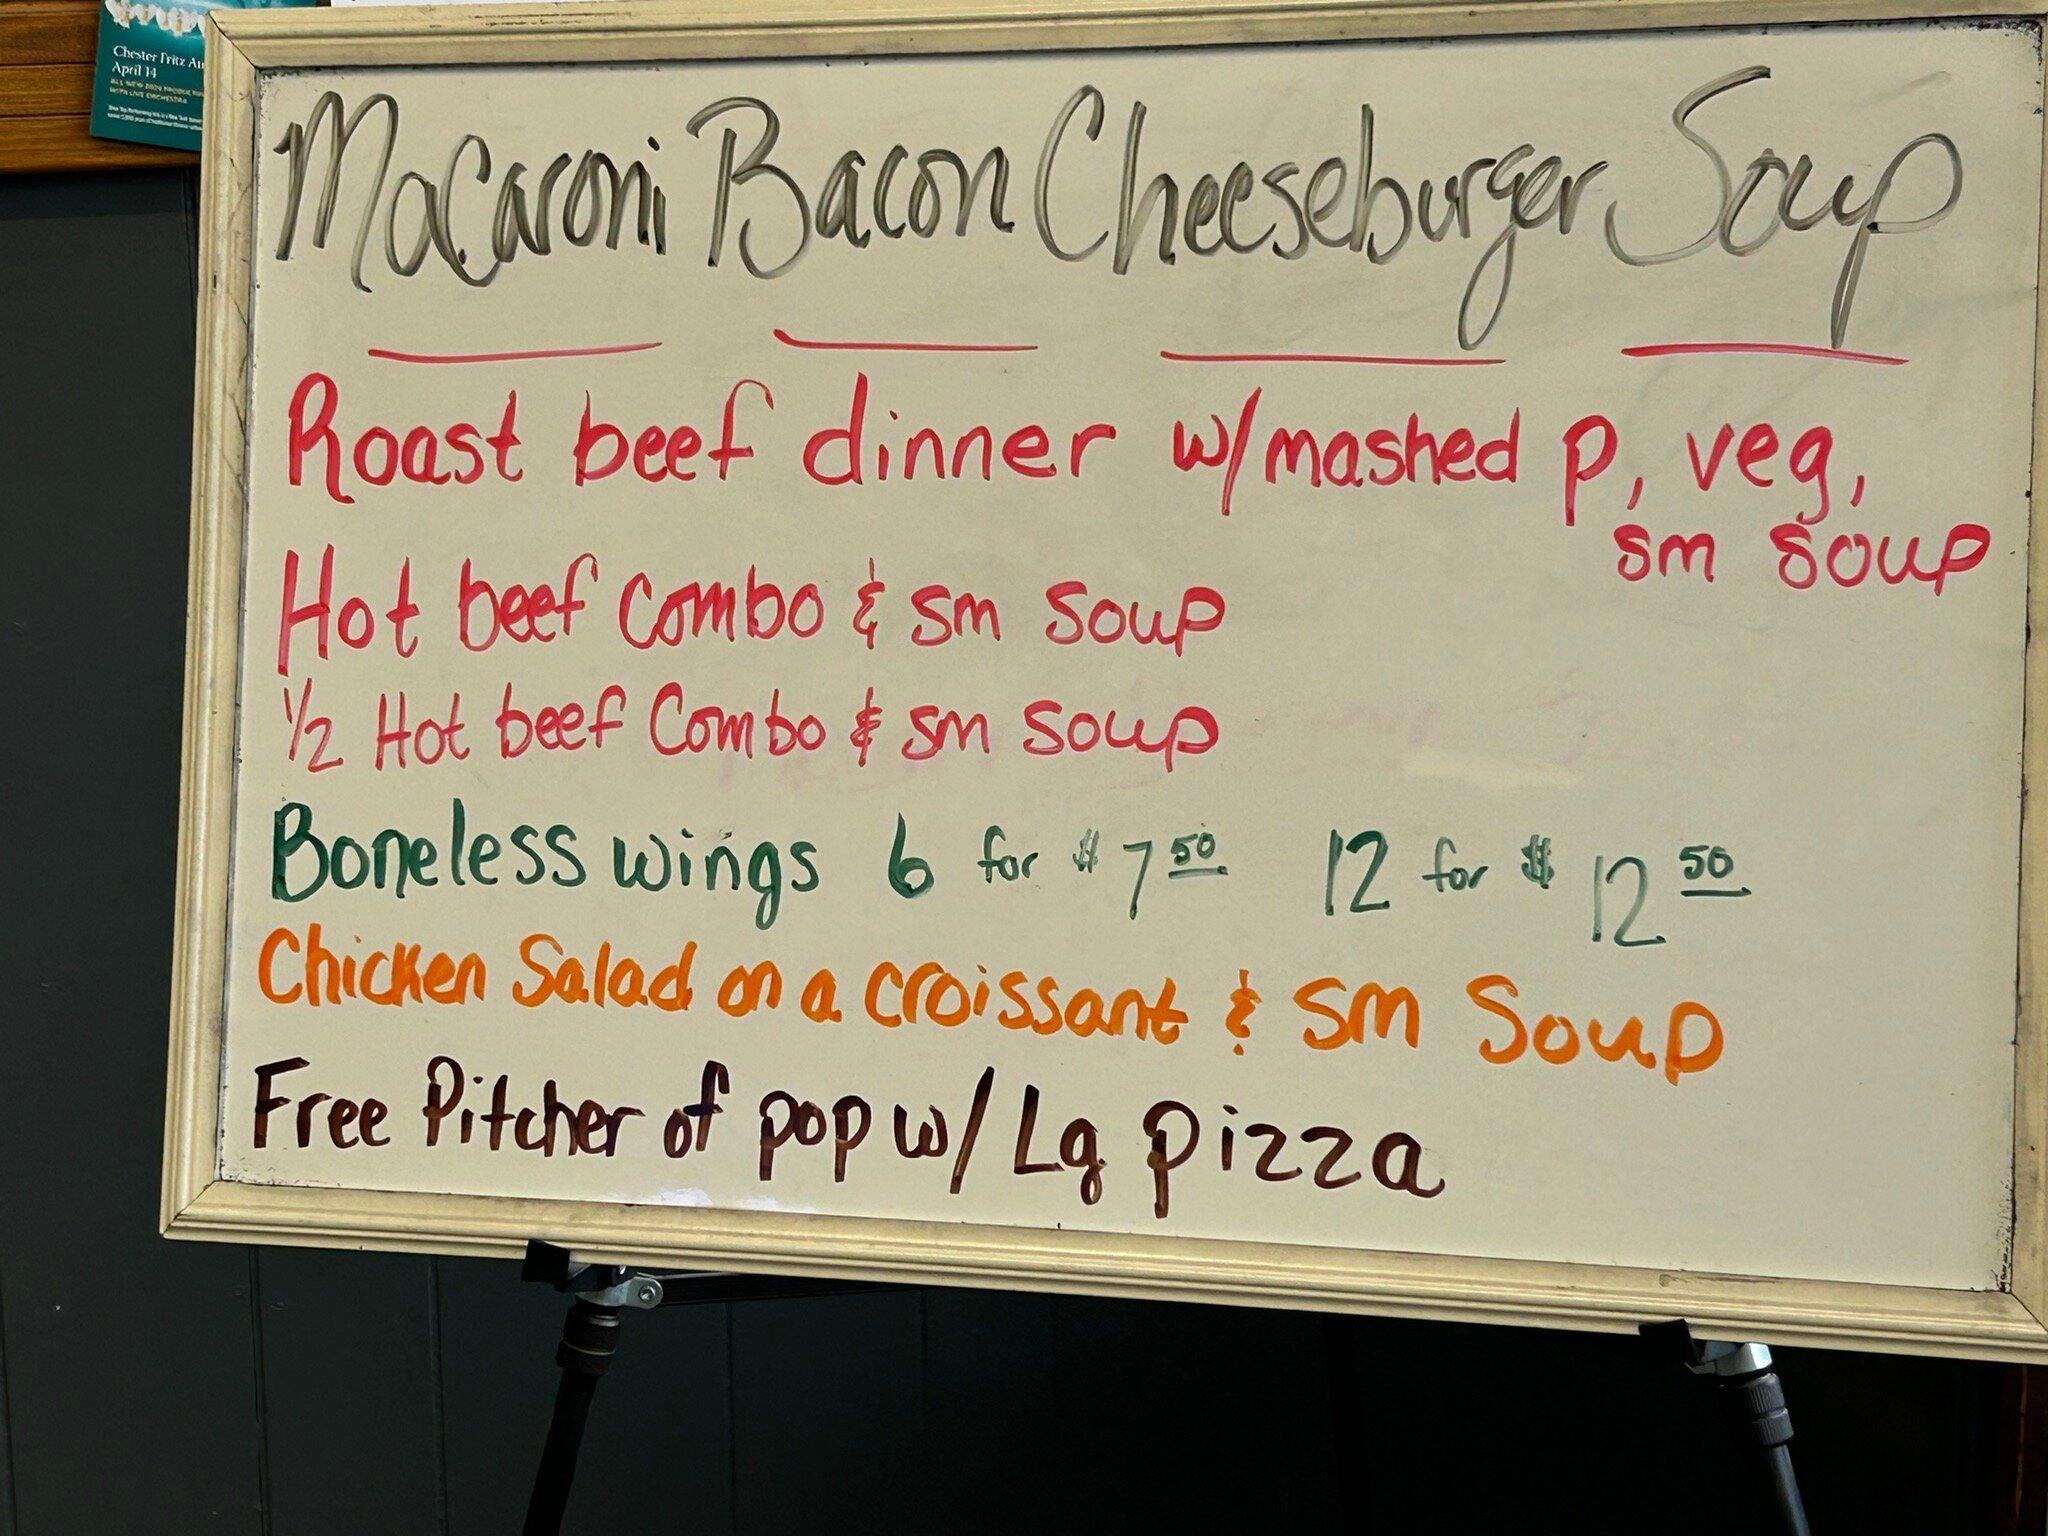 Chester Fritz Au
April 14
ALL NEW 2024 PRODUCTION
WITH LIVE ORCHESTRA
Macaroni Bacon Cheeseburger Soup
Roast beef dinner w/mashed p, veg,
sm soup
Hot beef combo & sm soup
1/2 Hot beef Combo & sm soup
Boneless wings 6 for $7 50 12 for $12 50
Chicken Salad on a croissant & sm Soup
Free Pitcher of pop w/ Lg pizza